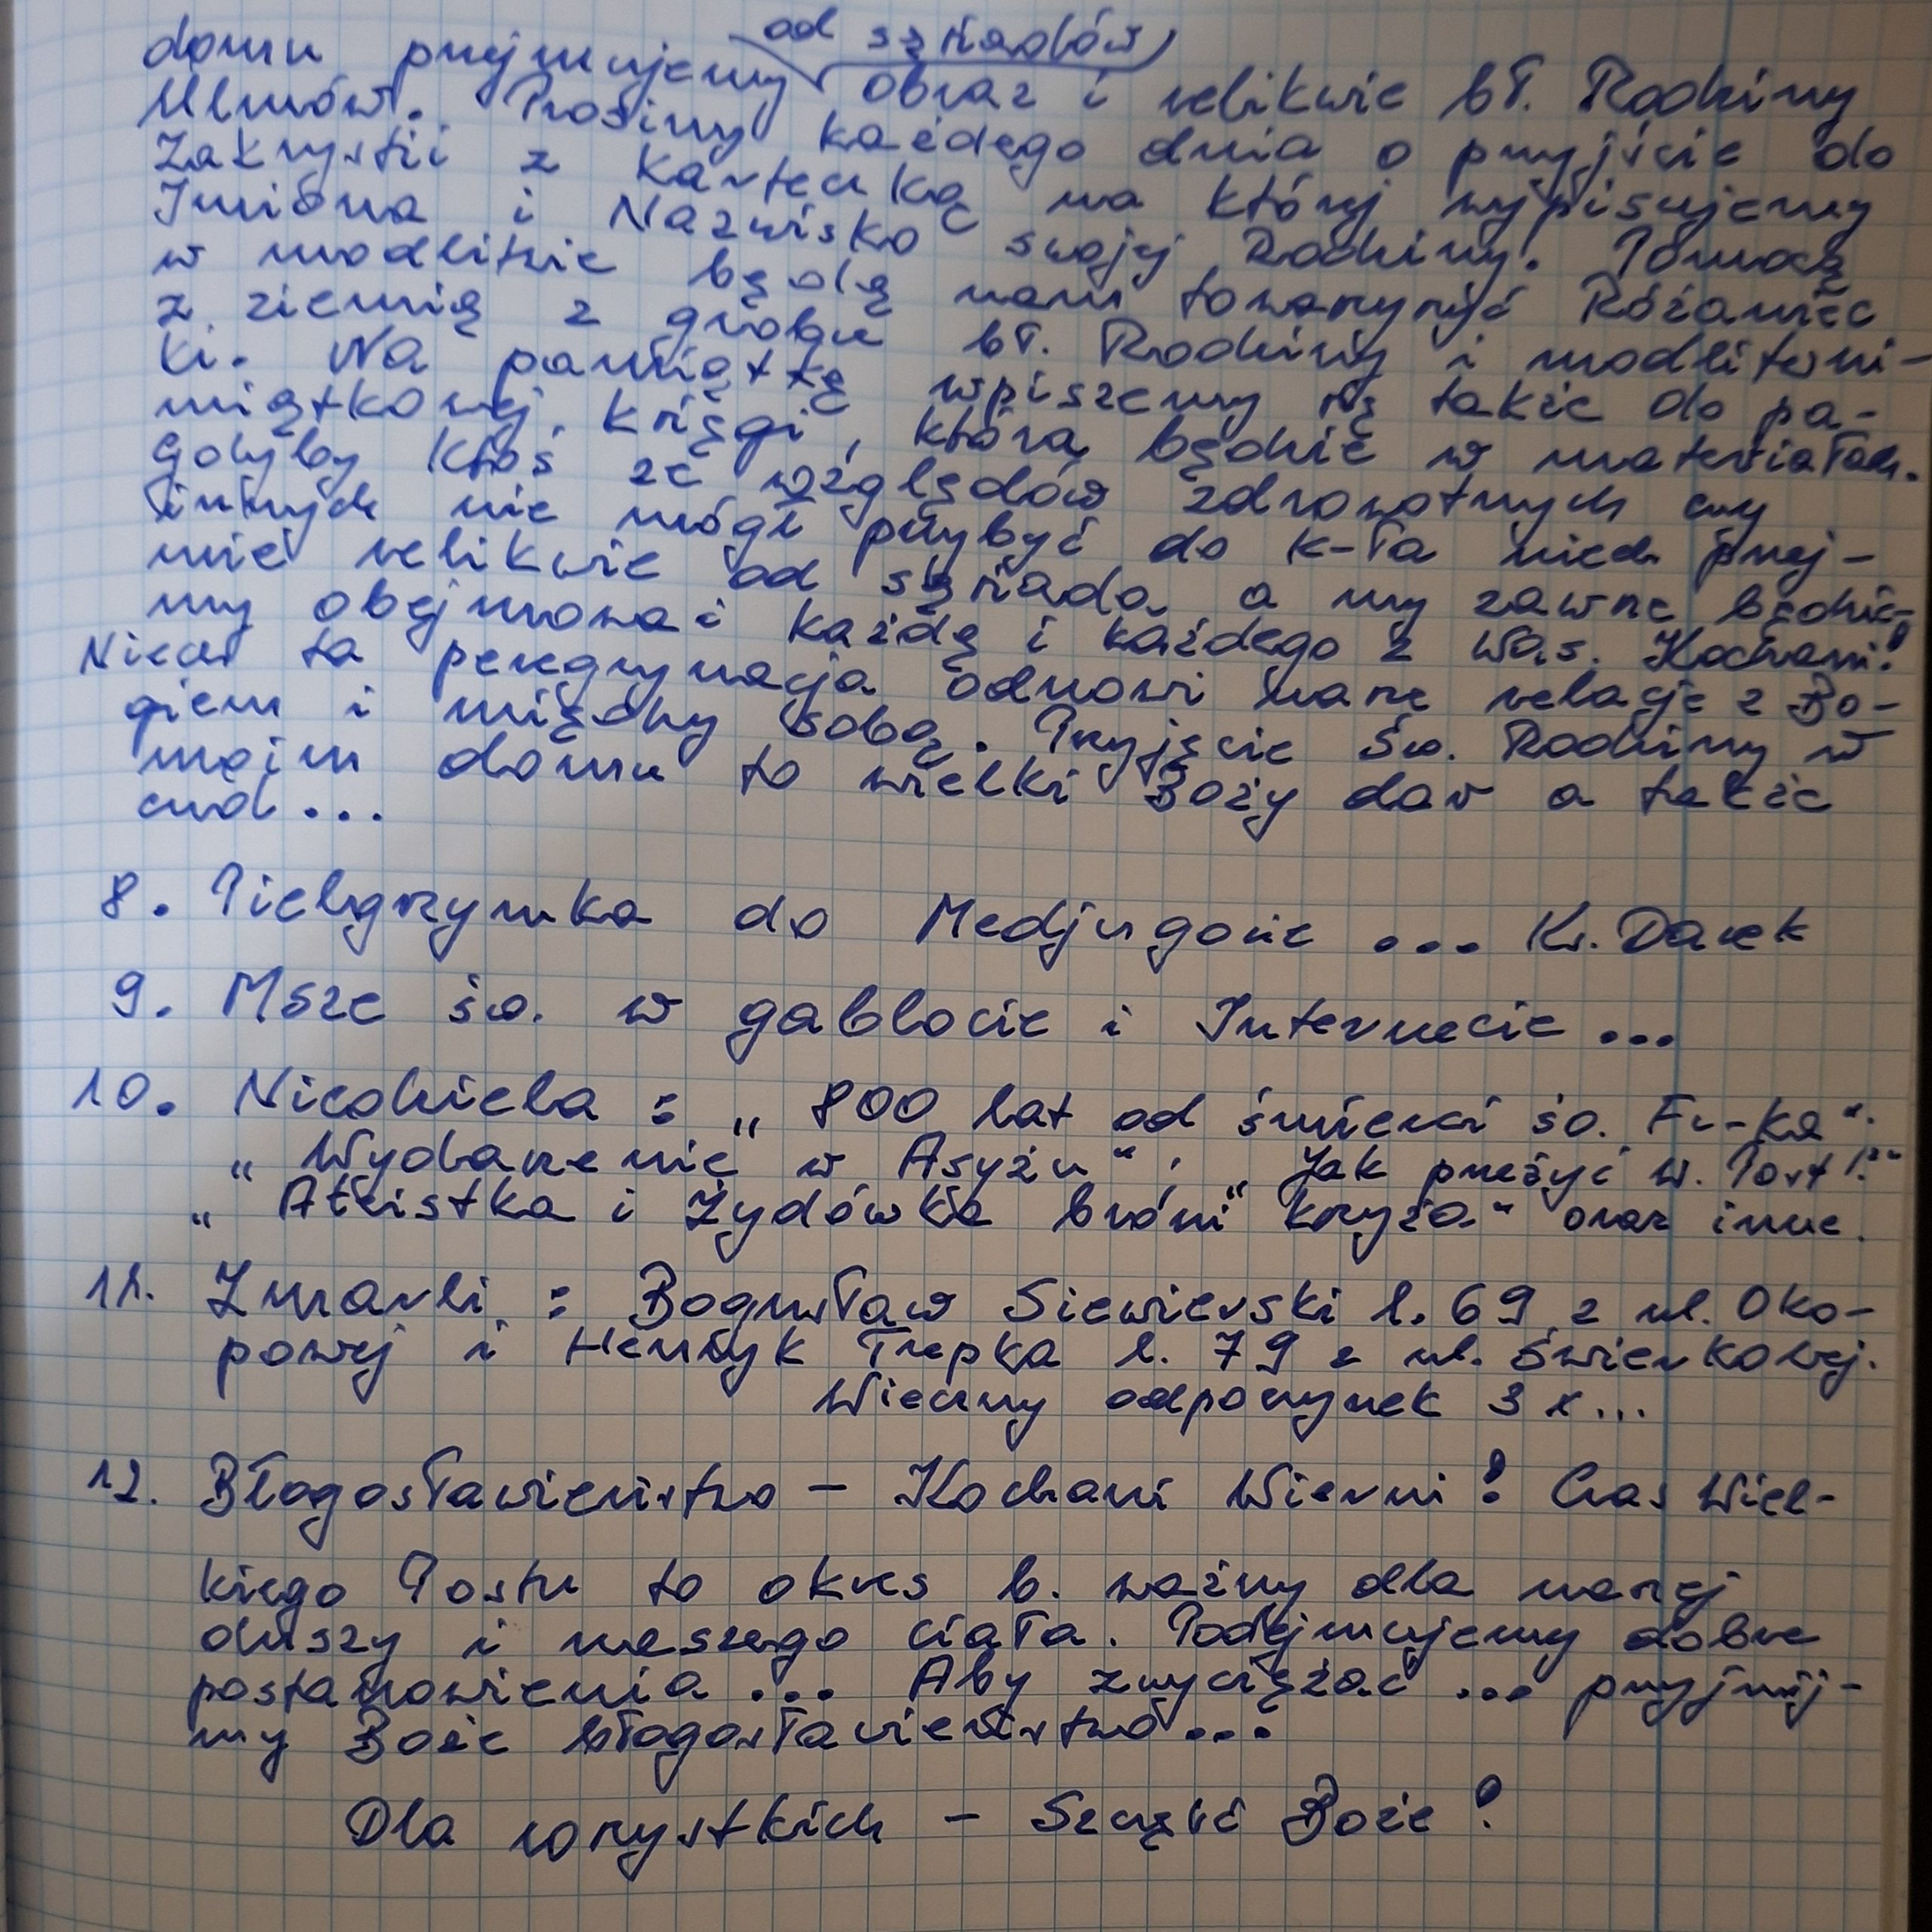 od sąsiadów
domu przejmujemy obraz i relikwie bł. Rodziny
Ulmów. Prosimy każdego dnia o przyjście do
Zakrystii z karteczką na której wypisujemy
Imiona i Nazwisko swojej Rodziny. Pomocą
w modlitwie będą nam towarzyszyć Różaniec
z ziemią z grobu bł. Rodziny i modlitewni-
ki. Na pamiątkę wpiszemy się także do pa-
miątkowej księgi, która będzie w materiałach.
Gdyby ktoś ze względów zdrowotnych czy
innych nie mógł przybyć do k-ła niech przej-
mie relikwie od sąsiada, a my zawsze będzie-
my obejmować każdą i każdego z Was. Kochani!
Niech ta peregrynacja odnowi nasze relacje z Bo-
giem i między sobą. Przyjęcie Św. Rodziny w
moim domu to wielki Boży dar a także
cud...
8. Pielgrzymka do Medjugorie ... Ks. Darek
9. Msze św. w gablocie i Internecie ...
10. Niedziela : „800 lat od śmierci św. Fr-ka".
„Wydarzenie w Asyżu", „Jak przeżyć W. Post!?"
„Ateistka i Żydówka broni krzyża" oraz inne.
11. Zmarli : Bogusław Siewierski l. 69 z ul. Oko-
powej i Henryk Trepka l. 79 z ul. Świerkowej.
Wieczny odpoczynek 3 x...
12. Błogosławieństwo – Kochani Wierni! Czas Wiel-
kiego Postu to okres b. ważny dla naszej
duszy i naszego ciała. Podejmujemy dobre
postanowienia ... Aby zwyciężać ... przyjmij-
my Boże błogosławieństwo...
Dla wszystkich – Szczęść Boże!